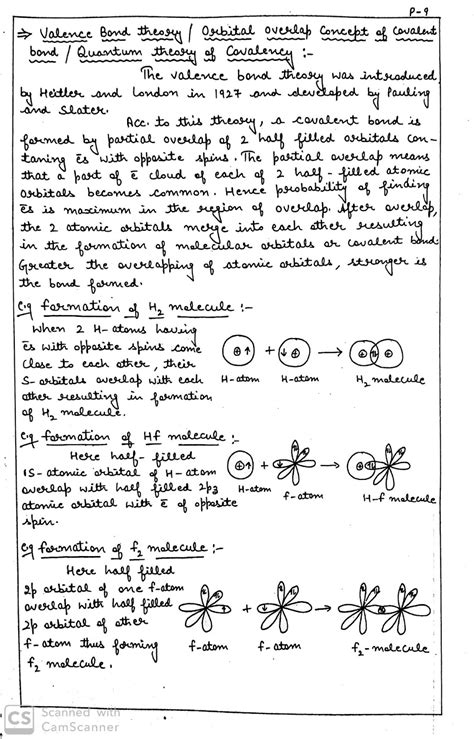 P-9
⇒ Valence Bond theory / Orbital overlap Concept of Covalent
bond / Quantum theory of Covalency :-
The valence bond theory was introduced
by Heitler and London in 1927 and developed by Pauling
and Slater.
Acc. to this theory, a covalent bond is
formed by partial overlap of 2 half filled orbitals con-
taning ēs with opposite spins. The partial overlap means
that a part of ē cloud of each of 2 half-filled atomic
Orbitals becomes common. Hence probability of finding
ēs is maximum in the region of overlap. After overlap,
the 2 atomic orbitals merge into each other resulting
in the formation of molecular orbitals or covalent bond.
Greater the overlapping of atomic orbitals, stronger is
the bond formed.
e.g formation of H₂ molecule :-
When 2 H-atoms having
ēs with opposite spins come
Close to each other, their
S-orbitals overlap with each
other resulting in formation
of H₂ molecule.
⊕↑ + ↓⊕ → ⊕⇅⊕
H-atom H-atom H₂ molecule
e.g formation of Hf molecule :-
Here half-filled
1S-atomic orbital of H-atom
overlap with half filled 2p3
atomic orbital with ē of opposite
spin.
H-atom f-atom H-f molecule
e.g formation of f₂ molecule :-
Here half filled
2p orbital of one f-atom
overlap with half filled
2p orbital of other
f-atom thus forming
f₂ molecule.
f-atom f-atom f₂-molecule
CS Scanned with
CamScanner